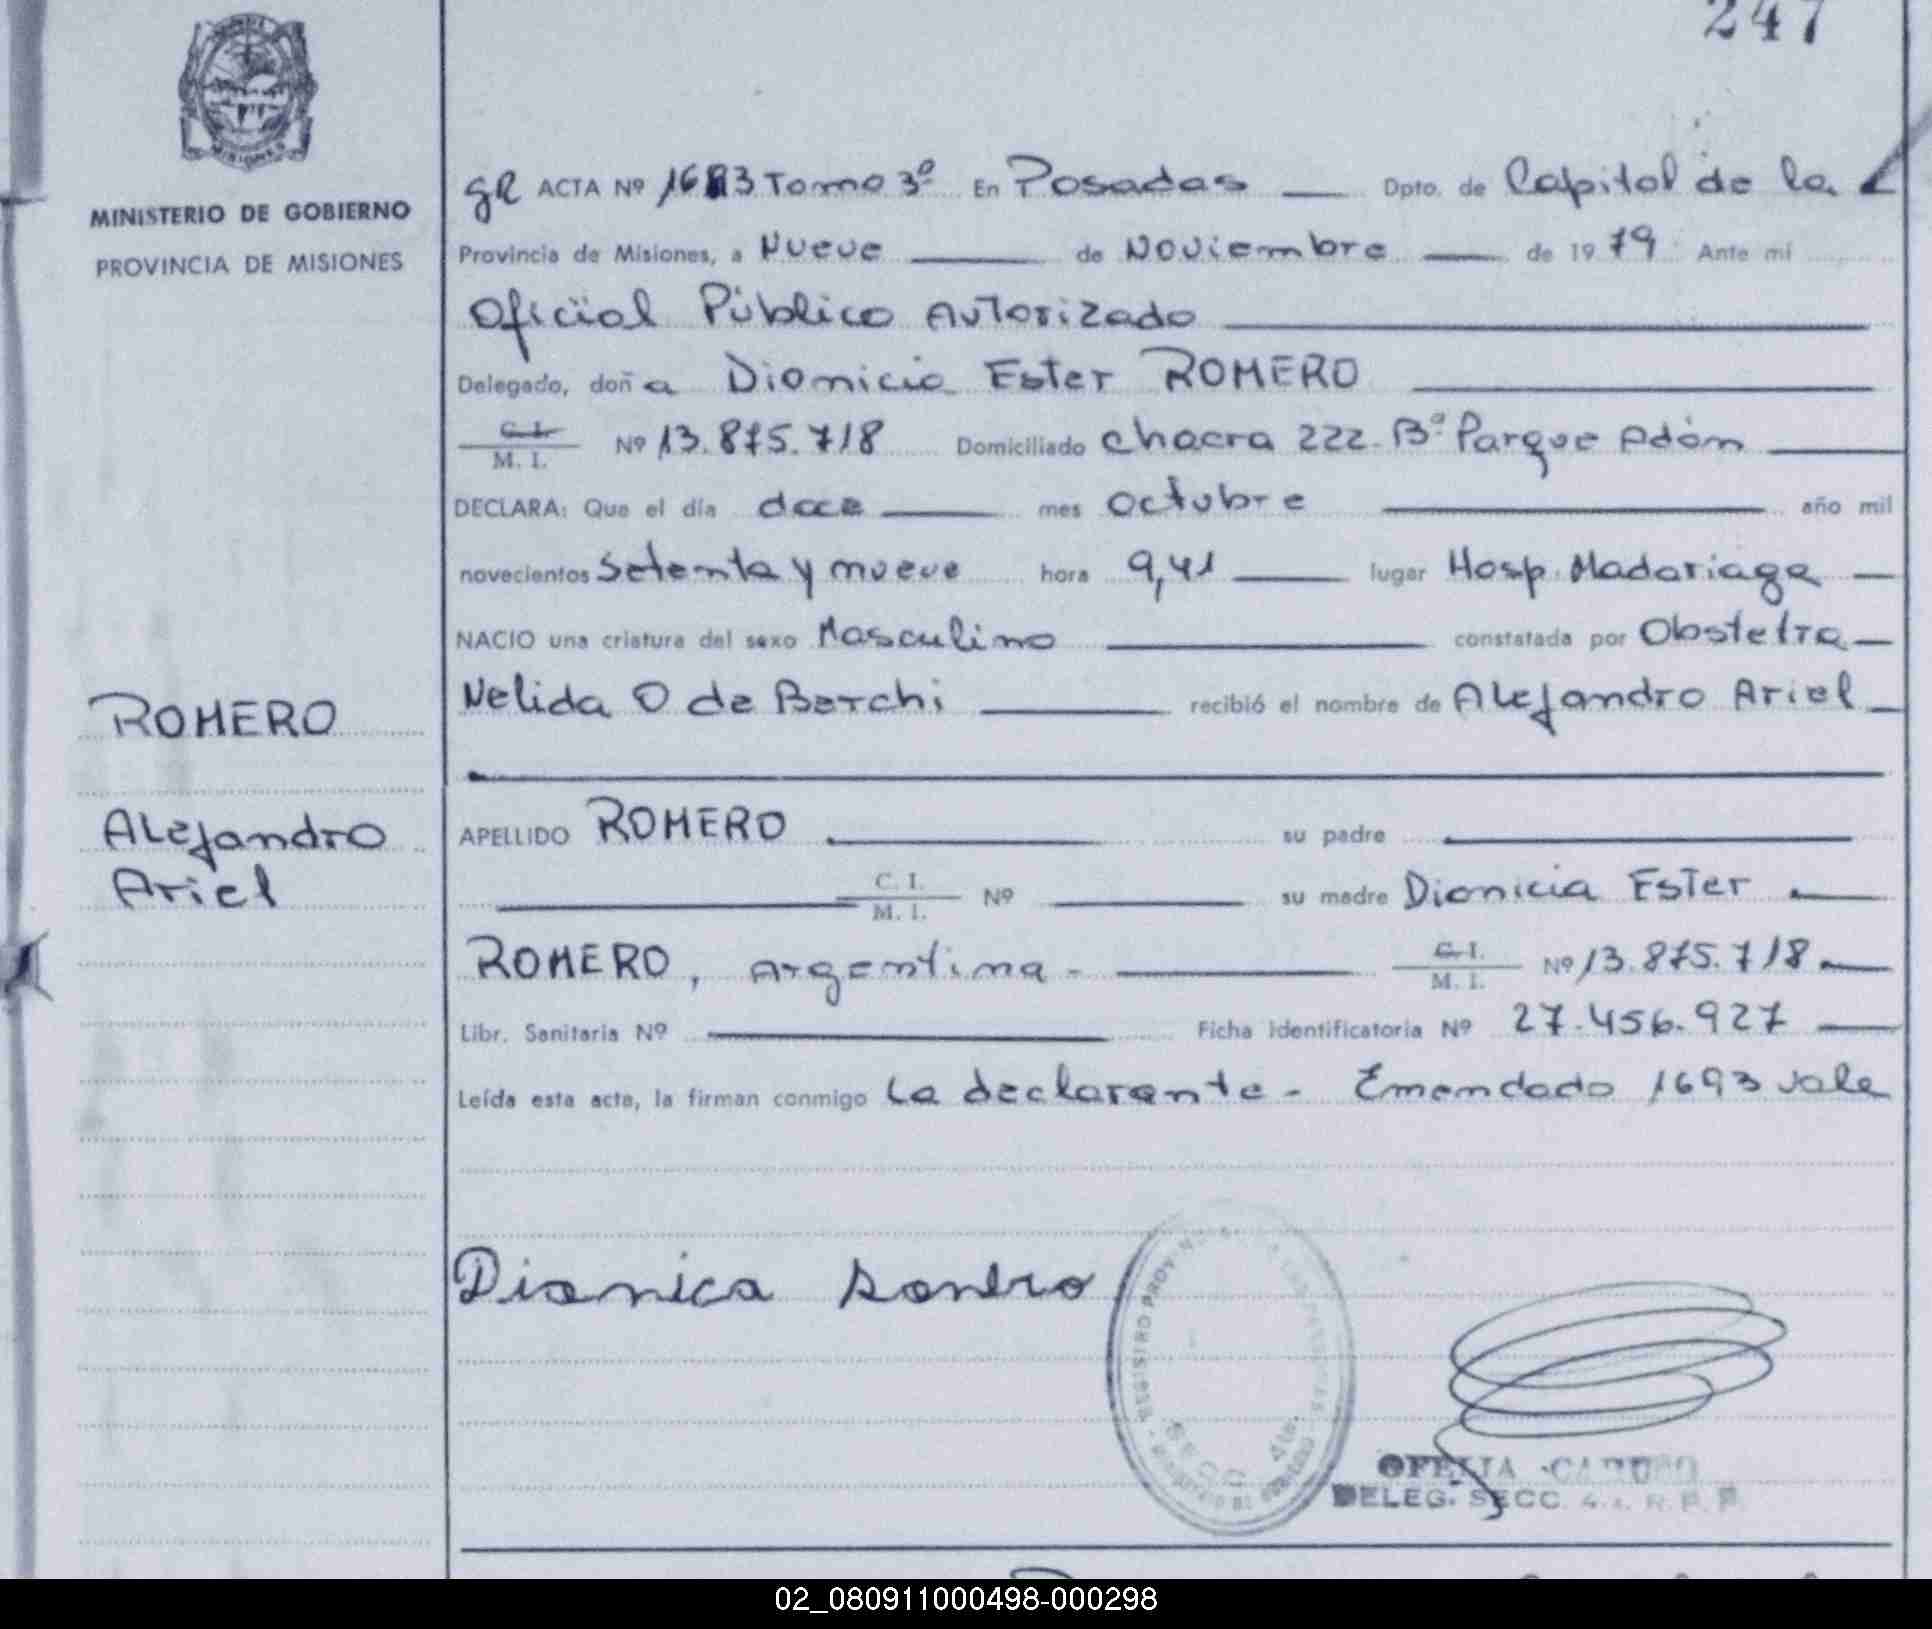 247
MISIONES
MINISTERIO DE GOBIERNO
PROVINCIA DE MISIONES
gR ACTA Nº 1693 Tomo 3º En Posadas Dpto. de Capital de la
Provincia de Misiones, a Nueve de Noviembre de 1979 Ante mí
Oficial Público Autorizado
Delegado, doña Dionicia Ester ROMERO
C. I. / M. I. Nº 13.875.718 Domiciliado chacra 222. Bº Parque Adám
DECLARA: Que el día doce mes octubre año mil
novecientos setenta y nueve hora 9,41 lugar Hosp. Madariaga
NACIO una criatura del sexo Masculino constatada por Obstetra
Nelida O de Berchi recibió el nombre de Alejandro Ariel
ROMERO
Alejandro
Ariel
APELLIDO ROMERO su padre
C. I. / M. I. Nº su madre Dionicia Ester
ROMERO, Argentina - C. I. / M. I. Nº 13.875.718
Libr. Sanitaria Nº Ficha Identificatoria Nº 27.456.927
Leída esta acta, la firman conmigo La declarante - Emendado 1693 vale
Dionica
REGISTRO PROV
SECC 4ta.
OFELIA
DELEG. SECC. 4a. R. P. P.
02_080911000498-000298